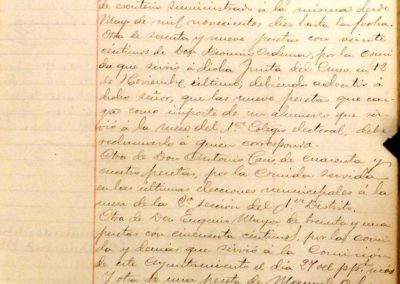 de escritorio suministrado á la misma desde
Mayo de mil novecientos diez hasta la fecha.
Otra de sesenta y nueve pesetas con veinte
centimos de Don Dionisio Ordenar, por la comi
da que sirvió á dicha Junta del Censo en 12
de Noviembre último, debiendo advertir á
dicho señor, que las nueve pesetas que car
ga como importe de un almuerzo que sir
vió á la mesa del 1er Colegio electoral, debe
reclamarlo á quien corresponda.
Otra de Don Antonio de cuarenta y
cuatro pesetas, por la comida servida
en las últimas elecciones municipales á la
mesa de la 2ª sección del 1er Distrito.
Otra de Don Eugenio Mayor de treinta y una
pesetas con cincuenta centimos, por la comi
da y demás que sirvió á la Comision
de este Ayuntamiento el dia 27 del p.p. mes
Y otra de una peseta de Manuel